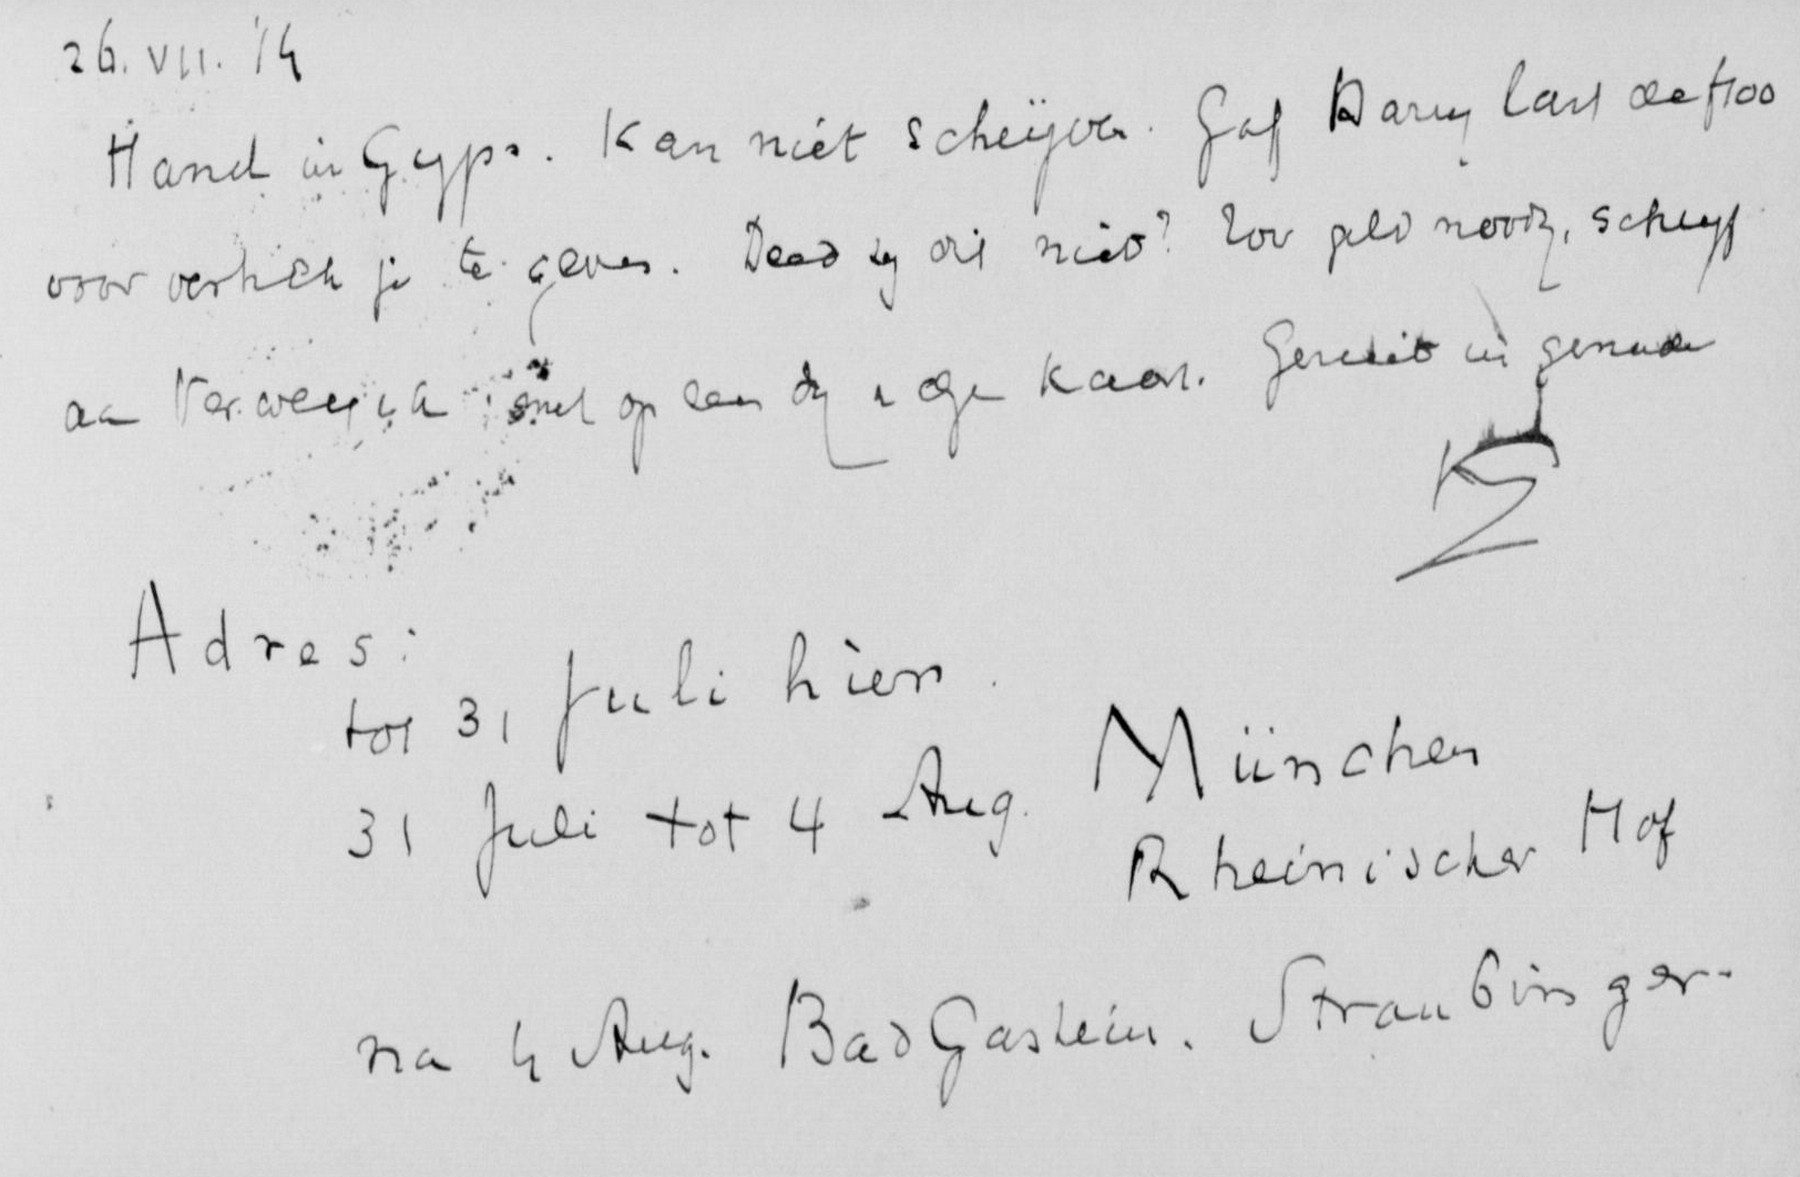 26. VII. '14
Hand in Gyps. Kan niet schrijven. Gaf Dary last de f100
voor vertrek je te geven. Deed zij dit niet? Zoo geld noodig, schrijf
aan Verweij en op een
kaart. Geniet in
KZ
Adres:
tot 31 Juli hier.
31 Juli tot 4 Aug. München
Rheinischer Hof
na 4 Aug. Bad Gastein. Straubinger.